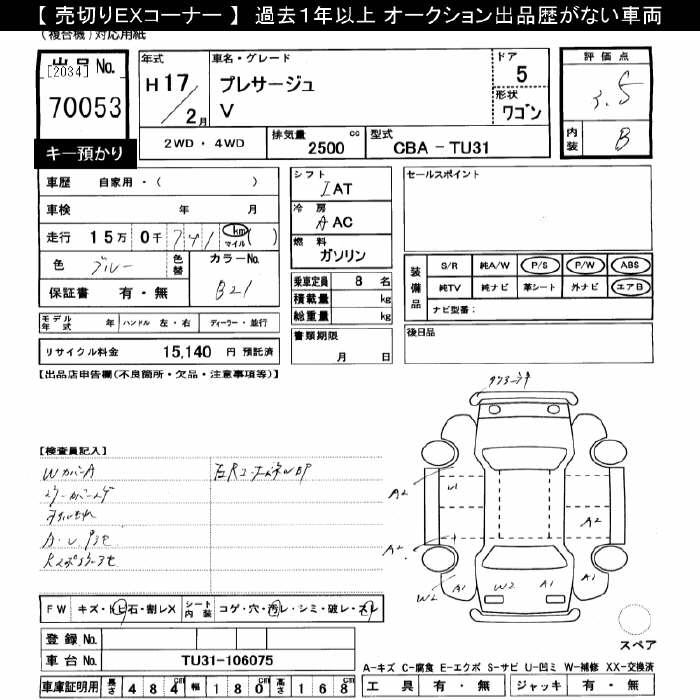 【 売切りEXコーナー 】 過去1年以上 オークション出品歴がない車両
(複合機)対応用紙
出品No.
[2034]
70053
キー預かり
年式
H 17 / 2月
車名・グレード
プレサージュ
V
ドア
5
形状
ワゴン
評価点
3.5
内装
B
2WD ・ 4WD
排気量 2500 cc
型式 CBA - TU31
車歴 自家用・( )
車検 年 月
走行 15万 0千 741 km マイル ( )
色 ブルー 色替 カラーNo. B21
保証書 有・無
シフト
IAT
冷房
A AC
燃料
ガソリン
乗車定員 8 名
積載量 kg
総重量 kg
書類期限
月 日
セールスポイント
装備品
S/R 純A/W P/S P/W ABS
純TV 純ナビ 革シート 外ナビ エアB
ナビ型番:
後日品
モデル年式 年 ハンドル 左・右 ディーラー・並行
リサイクル料金 15,140 円 預託済
【出品店申告欄(不良箇所・欠品・注意事項等)】
【検査員記入】
WカバーA
A2
W1
A2
A2
W2
A1
W2
A1
A1
スペア
FW キズ・トビ石・割レX シート内装 コゲ・穴・汚レ・シミ・破レ・スレ
登録 No.
車台 No. TU31-106075
車庫証明用 長さ 484 cm 幅 180 cm 高さ 168 cm
A-キズ C-腐食 E-エクボ S-サビ U-凹ミ W-補修 XX-交換済
工具 有・無 ジャッキ 有・無